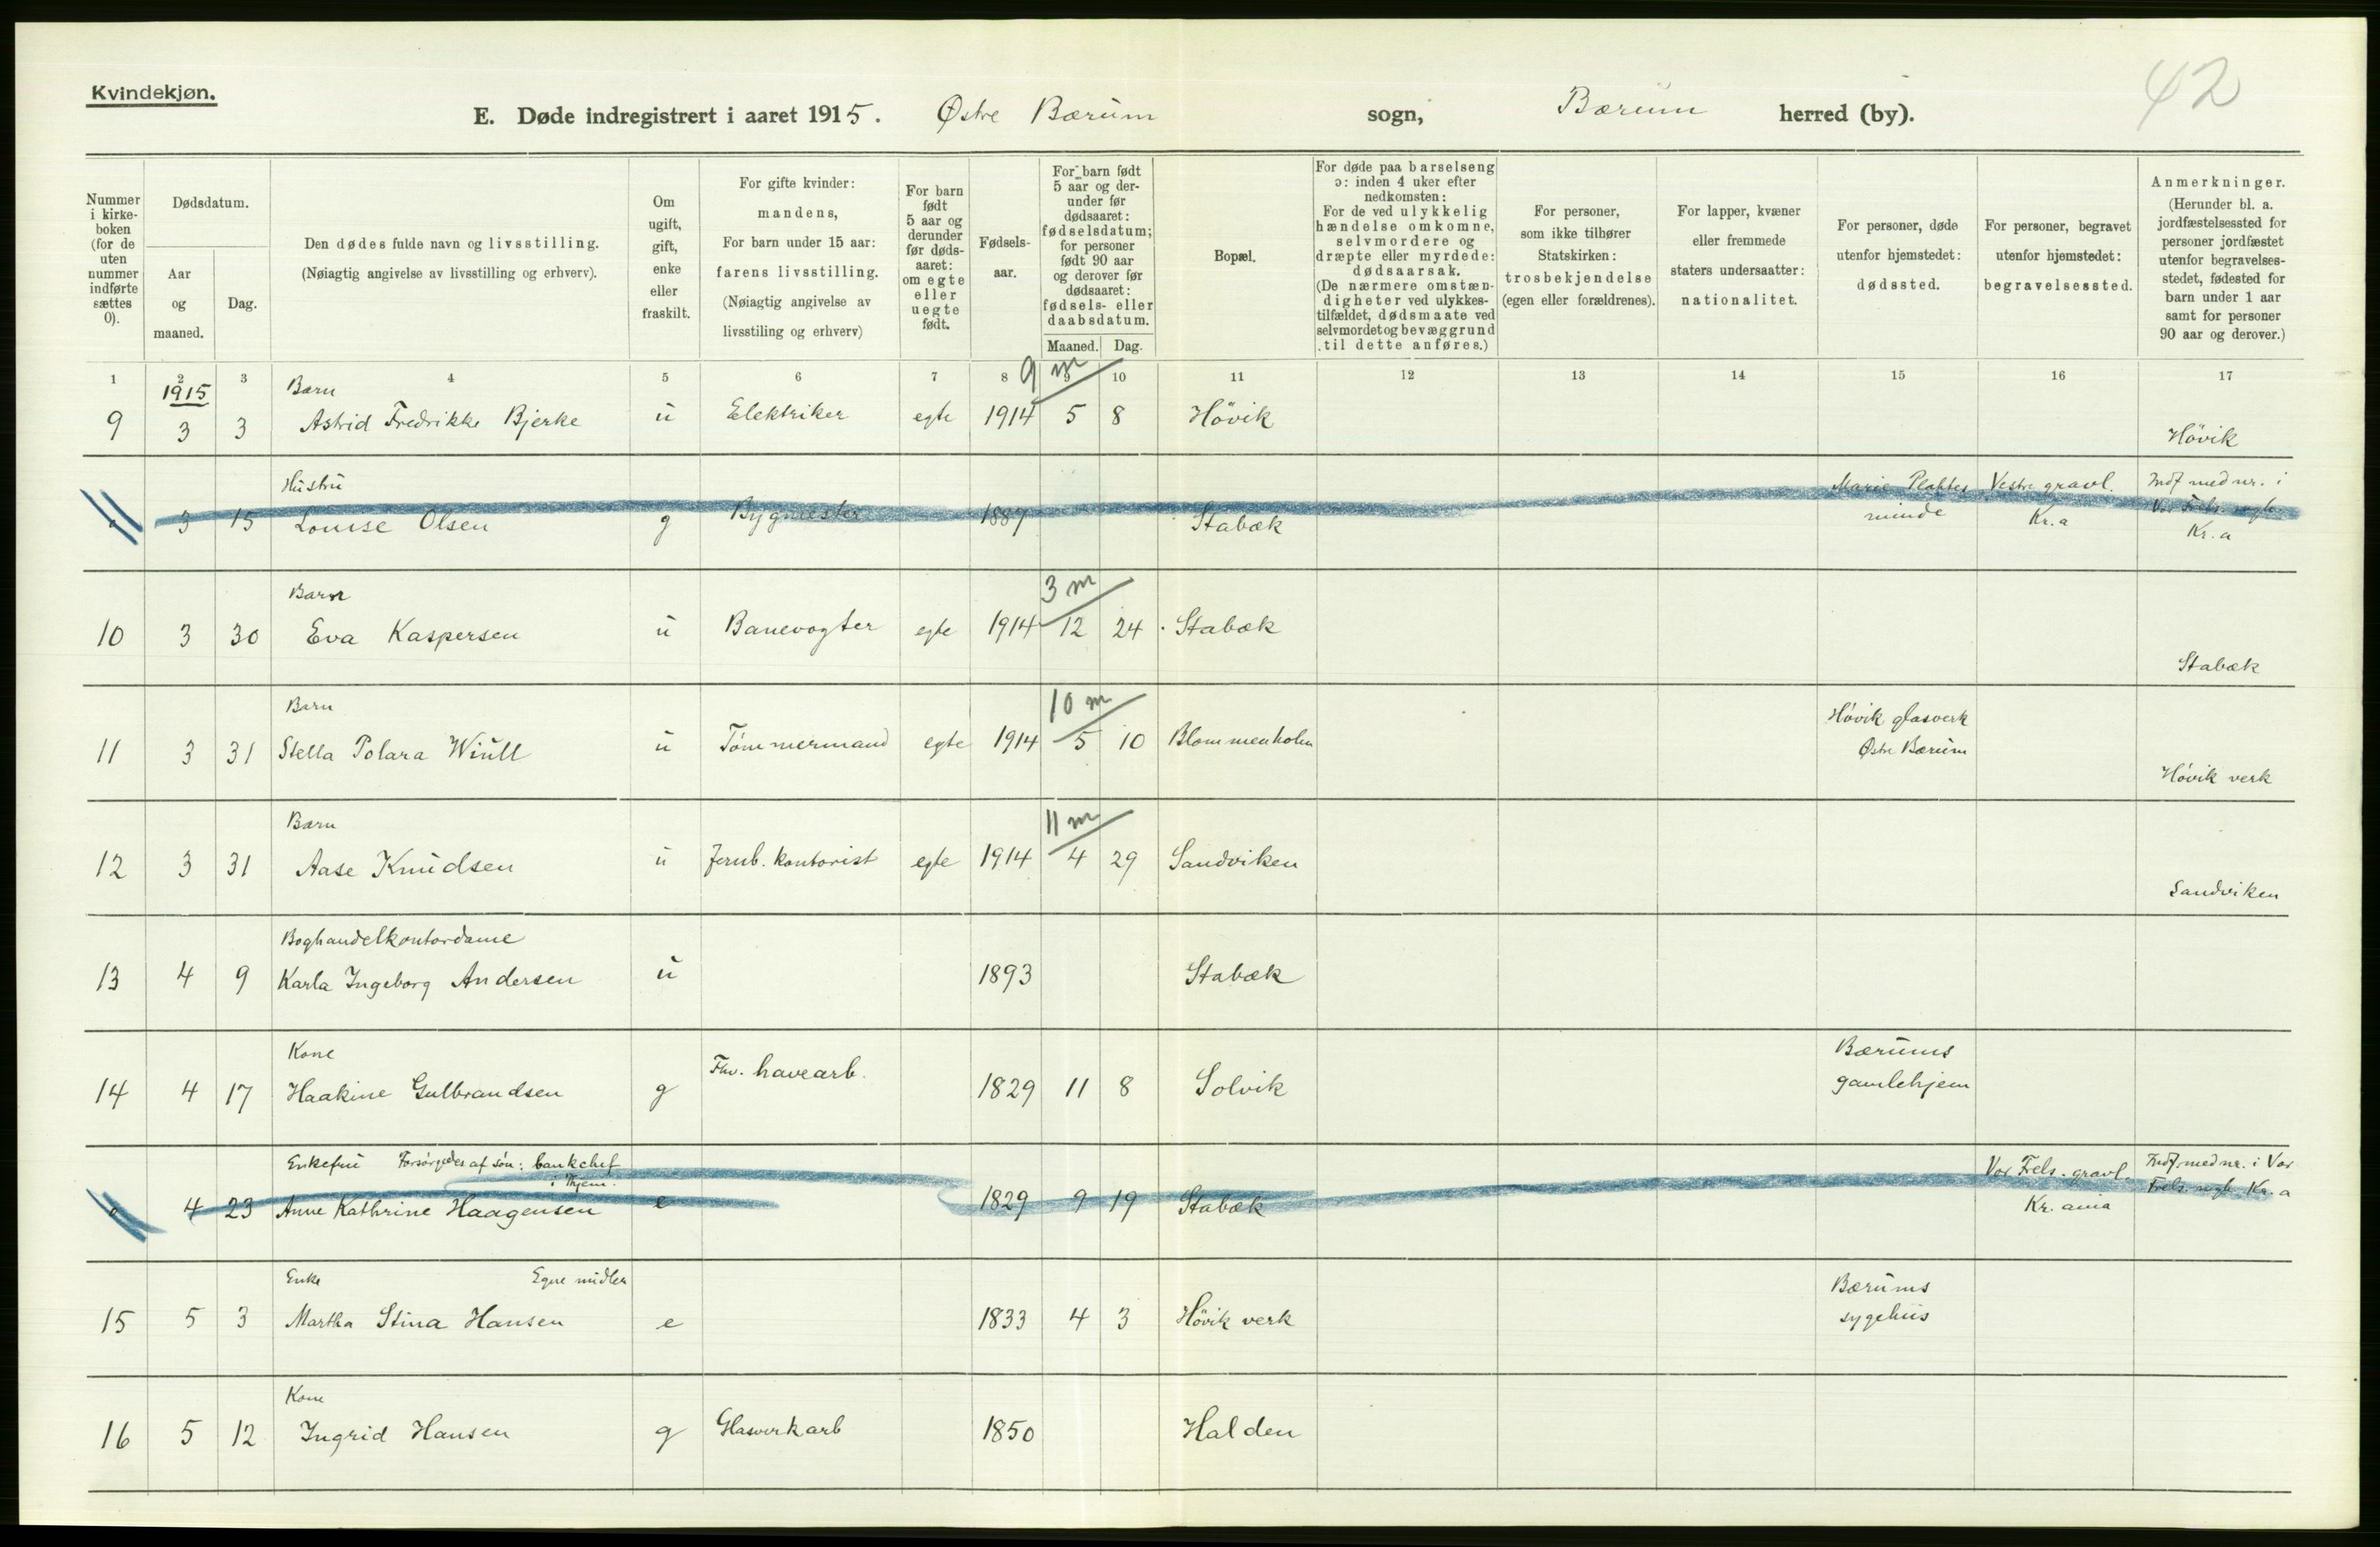 Kvindekjøn.
42
E. Døde indregistrert i aaret 1915. Østre Bærum sogn, Bærum herred (by).
Nummer i kirke- boken (for de uten nummer indførte sættes 0).
Dødsdatum.
Aar og maaned.
Dag.
Den dødes fulde navn og livsstilling.
(Nøiagtig angivelse av livsstilling og erhverv).
Om ugift, gift, enke eller fraskilt.
For gifte kvinder: mandens,
For barn under 15 aar: farens livsstilling.
(Nøiagtig angivelse av livsstiling og erhverv)
For barn født 5 aar og derunder før døds- aaret: om egte eller uegte født.
Fødsels- aar.
For barn født 5 aar og der- under før dødsaaret: fødselsdatum; for personer født 90 aar og derover før dødsaaret: fødsels- eller daabsdatum.
Maaned. Dag.
Bopæl.
For døde paa barselseng ɔ: inden 4 uker efter nedkomsten:
For de ved ulykkelig hændelse omkomne, selvmordere og dræpte eller myrdede: dødsaarsak.
(De nærmere omstæn- digheter ved ulykkes- tilfældet, dødsmaate ved selvmordet og bevæggrund til dette anføres.)
For personer, som ikke tilhører Statskirken: trosbekjendelse (egen eller forældrenes).
For lapper, kvæner eller fremmede staters undersaatter: nationalitet.
For personer, døde utenfor hjemstedet: dødssted.
For personer, begravet utenfor hjemstedet: begravelsessted.
Anmerkninger.
(Herunder bl. a. jordfæstelsessted for personer jordfæstet utenfor begravelses- stedet, fødested for barn under 1 aar samt for personer 90 aar og derover.)
1 2 3 4 5 6 7 8 9 10 11 12 13 14 15 16 17
1915 Barn 9 m
9 3 3 Astrid Fredrikke Bjerke u Elektriker egte 1914 5 8 Hövik Hövik
Hustru Marie Plahtes Vestre gravl. Indf med nr. i
0 3 15 Louise Olsen g Bygmester 1887 Stabæk minde Kr.a Vor Frels. sogn
Kr.a
Barn 3 m
10 3 30 Eva Kaspersen u Banevogter egte 1914 12 24 Stabæk
Stabæk
Barn 10 m Hövik glasverk
11 3 31 Stella Polara Wiull u Tömmermand egte 1914 5 10 Blommenholm Østre Bærum
Hövik verk
Barn 11 m
12 3 31 Aase Knudsen u Jernb. kontorist egte 1914 4 29 Sandviken
Sandviken
Boghandelkontordame
13 4 9 Karla Ingeborg Andersen u 1893 Stabæk
Kone Bærums
14 4 17 Haakine Gulbrandsen g Fhv. havearb. 1829 11 8 Solvik gamlehjem
Enkefru Forsörgedes af sön: bankchef Vor Frels. gravl. Indf. med nr. i Vor
i Thjem. Frels. sogn Kr.a
0 4 23 Anne Kathrine Haagensen e 1829 9 19 Stabæk Kr.ania
Enke Egne midler Bærums
15 5 3 Martha Stina Hansen e 1833 4 3 Hövik verk sygehus
Kone
16 5 12 Ingrid Hansen g Glasverkarb 1850 Halden